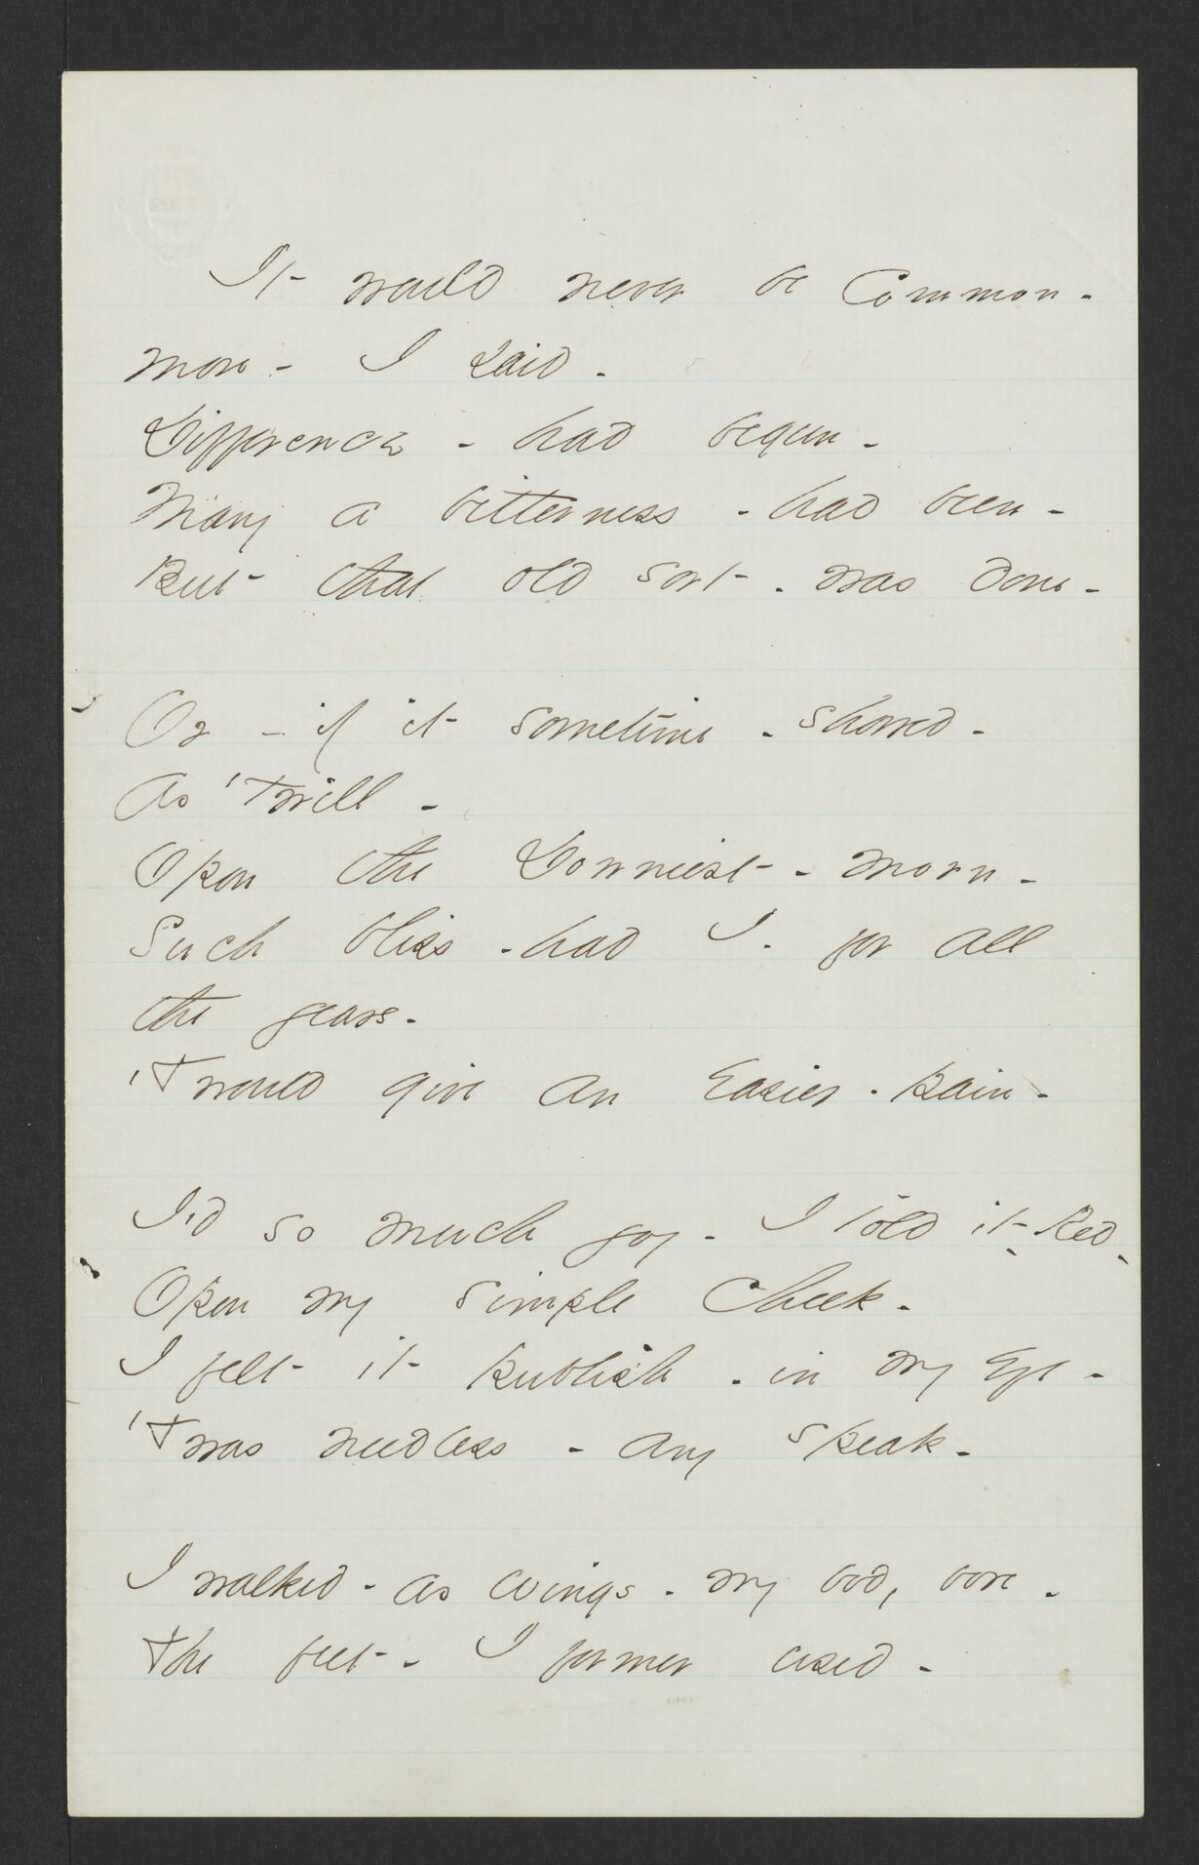 It would never be Common -
more - I said -
Difference - had begun -
Many a bitterness - had been -
But that old sort - was done -
Or - if it sometime - showed -
As 'twill -
Opon the Downiest - morn -
Such bliss - had I - for all
the years -
'Twould give an Easier - pain -
I'd so much joy - I told it - Red -
Opon my simple Cheek -
I felt it publish - in my Eye -
'Twas needless - any speak -
I walked - as wings - my body bore -
The feet - I former used -